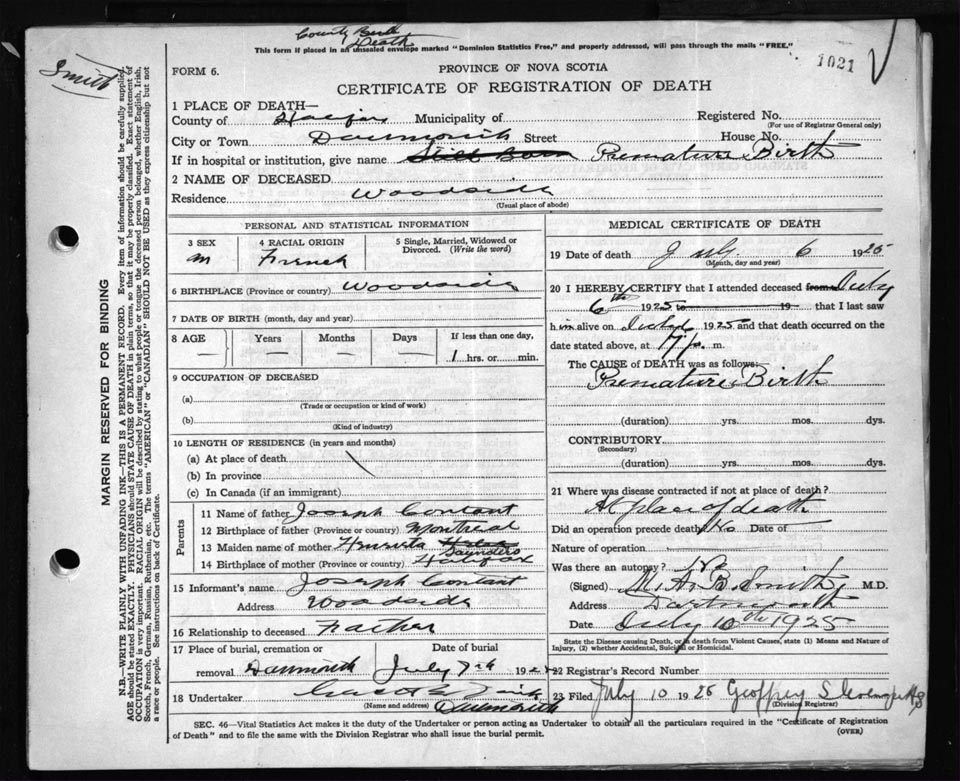 County Birth
Death
This form if placed in an unsealed envelope marked "Dominion Statistics Free," and properly addressed, will pass through the mails "FREE."
1021
Smith
FORM 6.
PROVINCE OF NOVA SCOTIA
CERTIFICATE OF REGISTRATION OF DEATH
1 PLACE OF DEATH—
County of Halifax Municipality of Registered No.
(For use of Registrar General only)
City or Town Dartmouth Street House No.
If in hospital or institution, give name Still Born Premature Birth
2 NAME OF DECEASED
Residence Woodside
(Usual place of abode)
PERSONAL AND STATISTICAL INFORMATION
3 SEX
M
4 RACIAL ORIGIN
French
5 Single, Married, Widowed or Divorced. (Write the word)
6 BIRTHPLACE (Province or country) Woodside
7 DATE OF BIRTH (month, day and year)
8 AGE
Years
Months
Days
If less than one day,
1 hrs. or min.
9 OCCUPATION OF DECEASED
(a)
(Trade or occupation or kind of work)
(b)
(Kind of industry)
10 LENGTH OF RESIDENCE (in years and months)
(a) At place of death
(b) In province
(c) In Canada (if an immigrant)
Parents
11 Name of father Joseph Contant
12 Birthplace of father (Province or country) Montreal
13 Maiden name of mother Henrietta Saunders
14 Birthplace of mother (Province or country) Halifax
15 Informant's name Joseph Contant
Address Woodside
16 Relationship to deceased Father
17 Place of burial, cremation or removal Dartmouth
Date of burial
July 7th 1925
18 Undertaker
(Name and address) Dartmouth
MEDICAL CERTIFICATE OF DEATH
19 Date of death July 6 1925
(Month, day and year)
20 I HEREBY CERTIFY that I attended deceased from July
6th 1925 to 19 that I last saw
him alive on July 6 1925 and that death occurred on the
date stated above, at m.
The CAUSE of DEATH was as follows:
Premature Birth
(duration) yrs. mos. dys.
CONTRIBUTORY
(Secondary)
(duration) yrs. mos. dys.
21 Where was disease contracted if not at place of death?
At place of death
Did an operation precede death? No Date of
Nature of operation
Was there an autopsy? No
(Signed) M. A. B. Smith M.D.
Address Dartmouth
Date July 10th 1925
State the Disease causing Death, or in death from Violent Causes, state (1) Means and Nature of Injury, (2) whether Accidental, Suicidal or Homicidal.
22 Registrar's Record Number
23 Filed July 10 1925 Geoffrey
(Division Registrar)
SEC. 46—Vital Statistics Act makes it the duty of the Undertaker or person acting as Undertaker to obtain all the particulars required in the "Certificate of Registration
of Death" and to file the same with the Division Registrar who shall issue the burial permit.
(OVER)
MARGIN RESERVED FOR BINDING
N.B.—WRITE PLAINLY WITH UNFADING INK—THIS IS A PERMANENT RECORD. Every item of information should be carefully supplied.
AGE should be stated EXACTLY. PHYSICIANS should STATE CAUSE OF DEATH in plain terms, so that it may be properly classified. Exact statement of
OCCUPATION is very important. RACIAL ORIGIN will be described by stating to what people or tongue the deceased person belonged, whether English, Irish,
Scotch, French, German, Russian, Ruthenian, etc. The terms "AMERICAN" or "CANADIAN" SHOULD NOT BE USED as they express citizenship but not
a race or people. See instructions on back of Certificate.